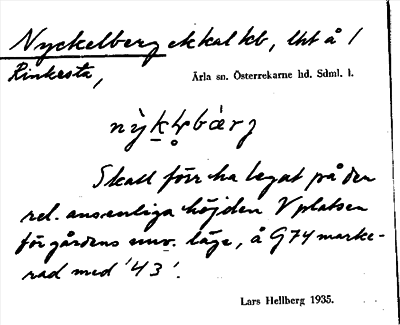 Nyckelberg ekkalkb, lht å 1
Rinkesta,
Ärla sn. Österrekarne hd. Sdml. l.
Skall förr ha legat på den
rel. ansenliga höjden V platsen
för gårdens nuv. läge, å G74 marke-
rad med '43'.
Lars Hellberg 1935.